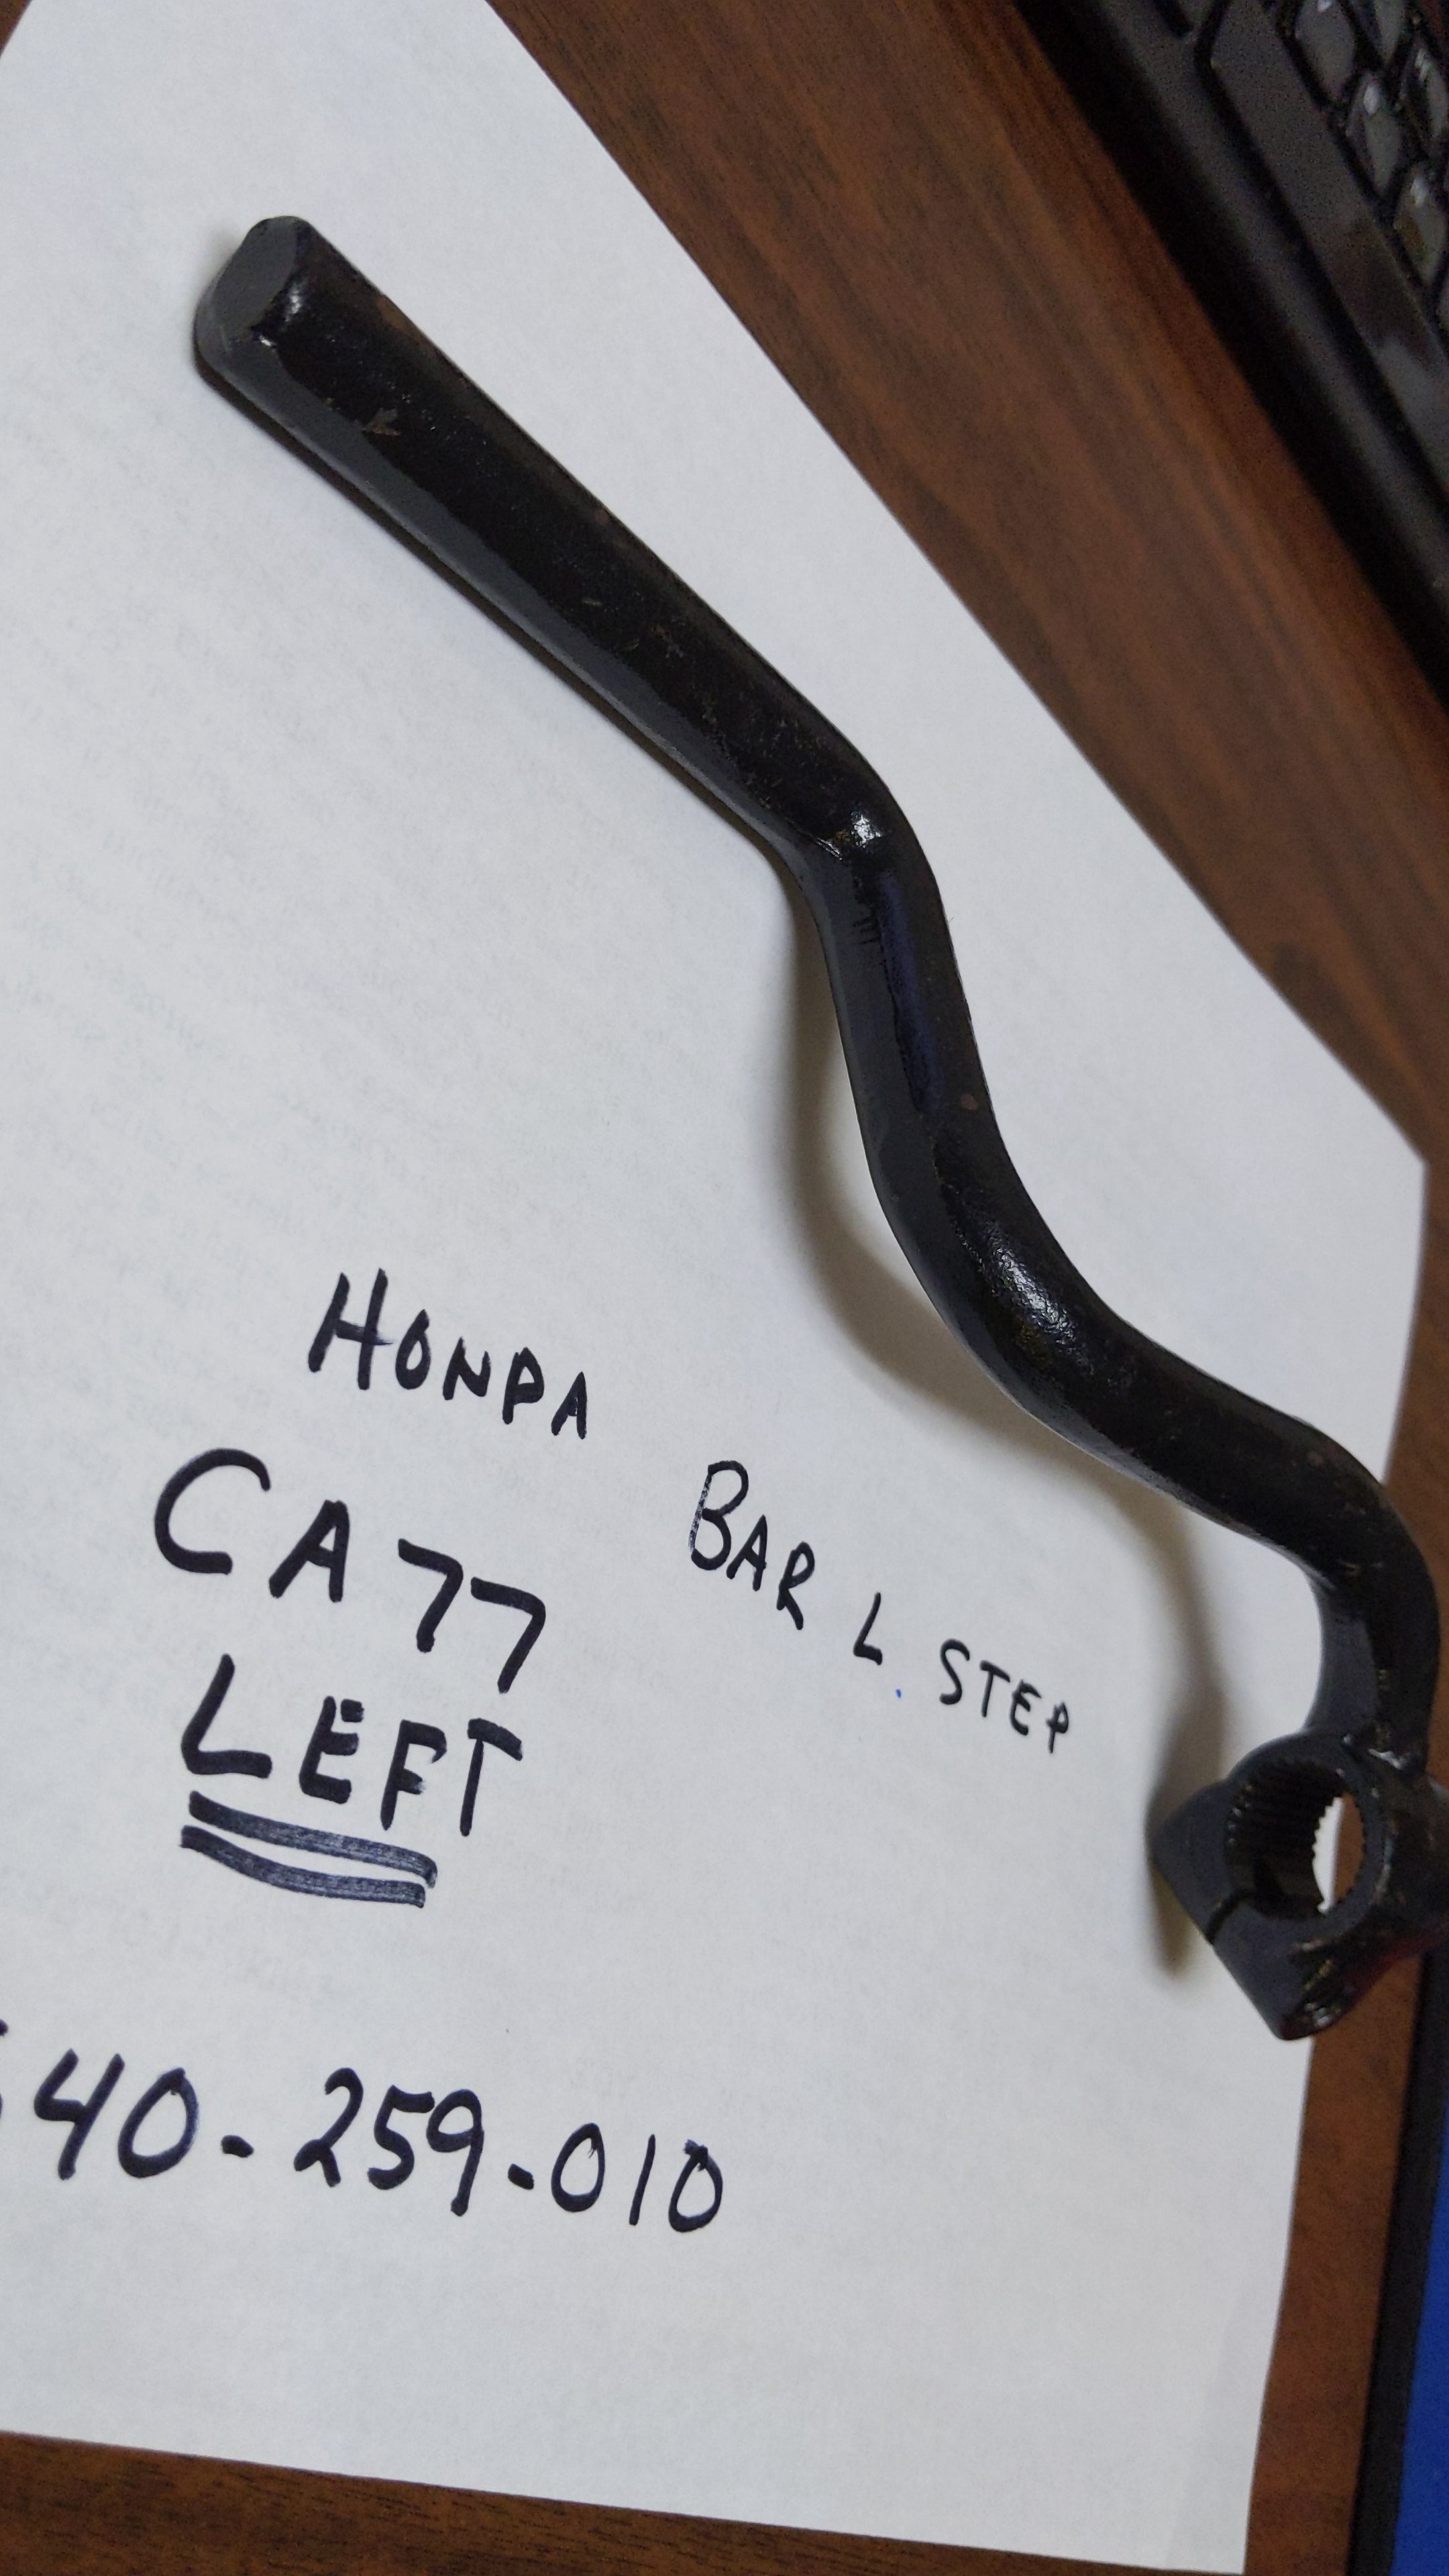 HONDA
CA77
LEFT
BAR L. STEP
40-259-010